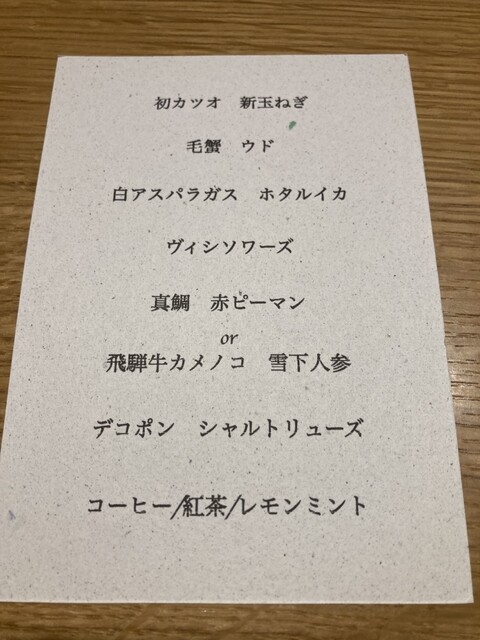 初カツオ　新玉ねぎ
毛蟹　ウド
白アスパラガス　ホタルイカ
ヴィシソワーズ
真鯛　赤ピーマン
or
飛騨牛カメノコ　雪下人参
デコポン　シャルトリューズ
コーヒー/紅茶/レモンミント